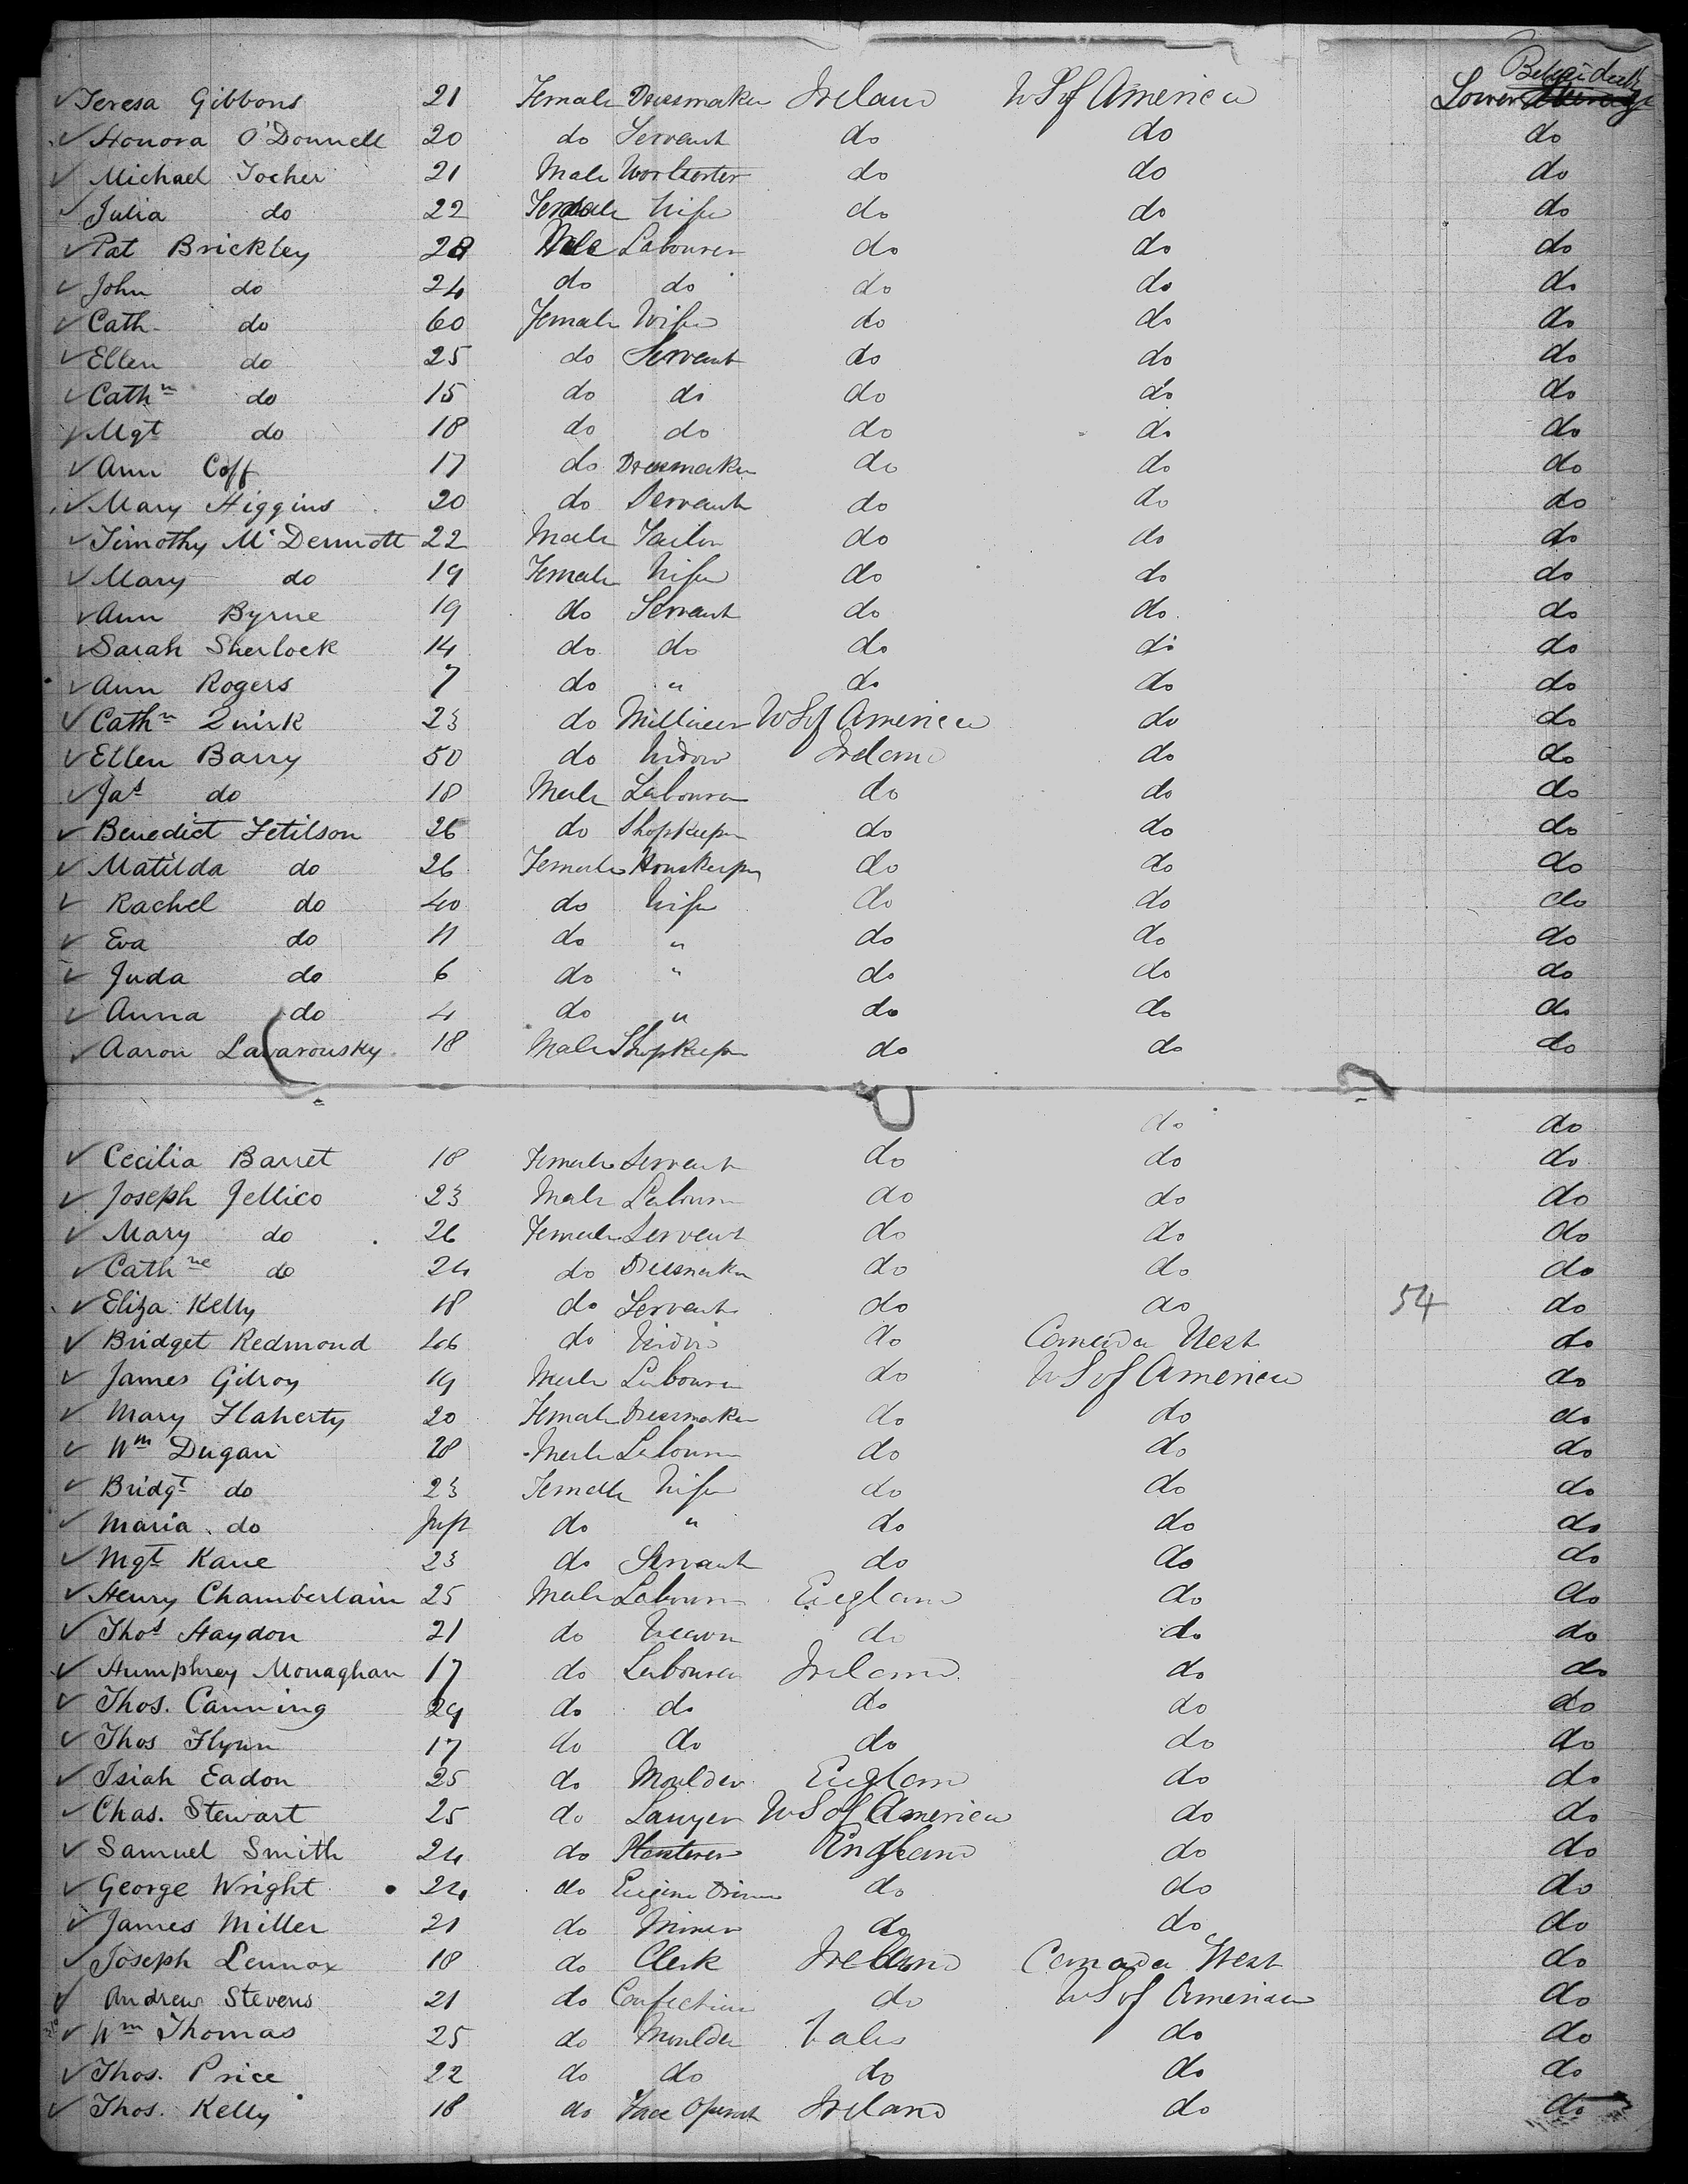 Teresa Gibbons 21 Female Dressmaker Ireland U S of America Lower
Honora O'Donnell 20 do Servant do do do
Michael Tocher 21 Male do do do
Julia do 22 Female Wife do do do
Pat Brickley 28 Male Labourer do do do
John do 24 do do do do do
Cath do 60 Female Wife do do do
Ellen do 25 do Servant do do do
Cathn do 15 do do do do do
Mgt do 18 do do do do do
Ann Coff 17 do Dressmaker do do do
Mary Higgins 20 do Servant do do do
Timothy McDermott 22 Male Tailor do do do
Mary do 19 Female Wife do do do
Ann Byrne 19 do Servant do do do
Sarah Sherlock 14 do do do do do
Ann Rogers 7 do " do do do
Cathn Quirk 23 do Milliner U S of America do do
Ellen Barry 50 do Widow Ireland do do
Jas do 18 Male Labourer do do do
Benedict Fetilson 26 do Shopkeeper do do do
Matilda do 26 Female Housekeeper do do do
Rachel do 40 do Wife do do do
Eva do 11 do " do do do
Juda do 6 do " do do do
Anna do 4 do " do do do
Aaron Lavarousky 18 Male Shopkeeper do do do
do do
Cecilia Barret 18 Female Servant do do do
Joseph Jellico 23 Male Labourer do do do
Mary do 26 Female Servant do do do
Cathne do 24 do Dressmaker do do do
Eliza Kelly 18 do Servant do do 54 do
Bridget Redmond 46 do Widow do Canada West do
James Gilroy 19 Male Labourer do U S of America do
Mary Flaherty 20 Female Dressmaker do do do
Wm Dugan 28 Male Labourer do do do
Bridgt do 23 Female Wife do do do
Maria do Inft do " do do do
Mgt Kane 23 do Servant do do do
Henry Chamberlain 25 Male Labourer England do do
Thos Haydon 21 do do do do
Humphrey Monaghan 17 do Labourer Ireland do do
Thos. Canning 29 do do do do do
Thos Flynn 17 do do do do do
Isiah Eadon 25 do Moulder England do do
Chas. Stewart 25 do Lawyer U S of America do do
Samuel Smith 24 do Plasterer England do do
George Wright 24 do Engine Driver do do do
James Miller 21 do Miner do do do
Joseph Lennox 18 do Clerk Ireland Canada West do
Andrew Stevens 21 do Confectioner do U S of America do
Wm Thomas 25 do Moulder Wales do do
Thos. Price 22 do do do do do
Thos. Kelly 18 do Operat Ireland do do